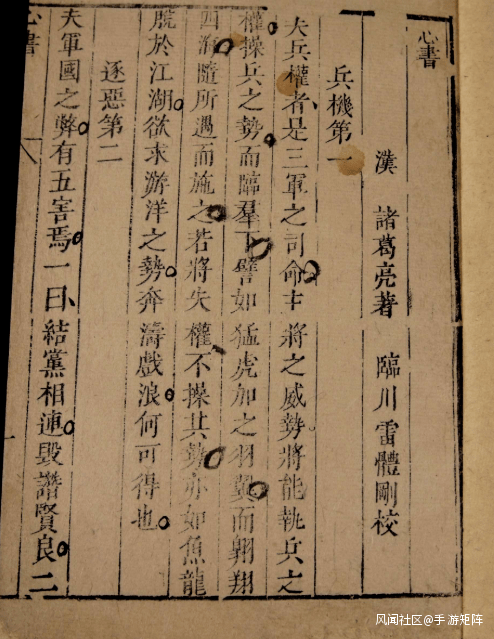 心書
漢 諸葛亮著 臨川雷體剛校
兵機第一
夫兵權者是三軍之司命主將之威勢將能執兵之
權操兵之勢而臨羣下譬如猛虎加之羽翼而翱翔
四海隨所遇而施之若將失權不操其勢亦如魚龍
脫於江湖欲求游洋之勢奔濤戲浪何可得也
逐惡第二
夫軍國之弊有五害焉一曰結黨相連毀譖賢良二
心書
风闻社区@手游矩阵